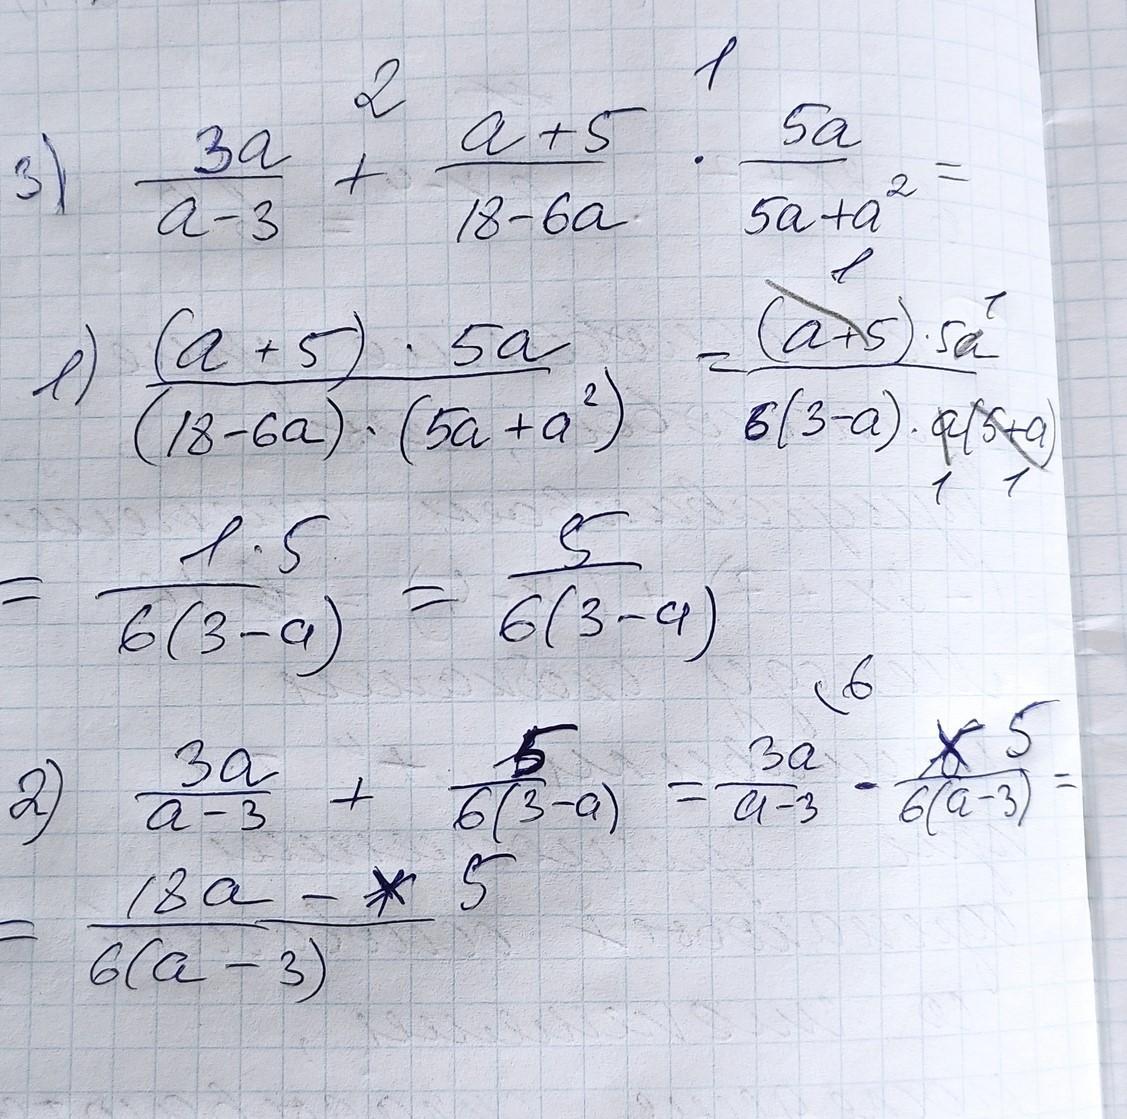 2 1
3) 3a/(a-3) + (a+5)/(18-6a) · 5a/(5a+a²) =
1) (a+5)·5a/((18-6a)·(5a+a²)) = (a+5)·5a/(6(3-a)·a(5+a))
= 1·5/(6(3-a)) = 5/(6(3-a))
2) 3a/(a-3) + 5/(6(3-a)) = 3a/(a-3) (6 - 5/(6(a-3)) =
= (18a - 5)/(6(a-3))